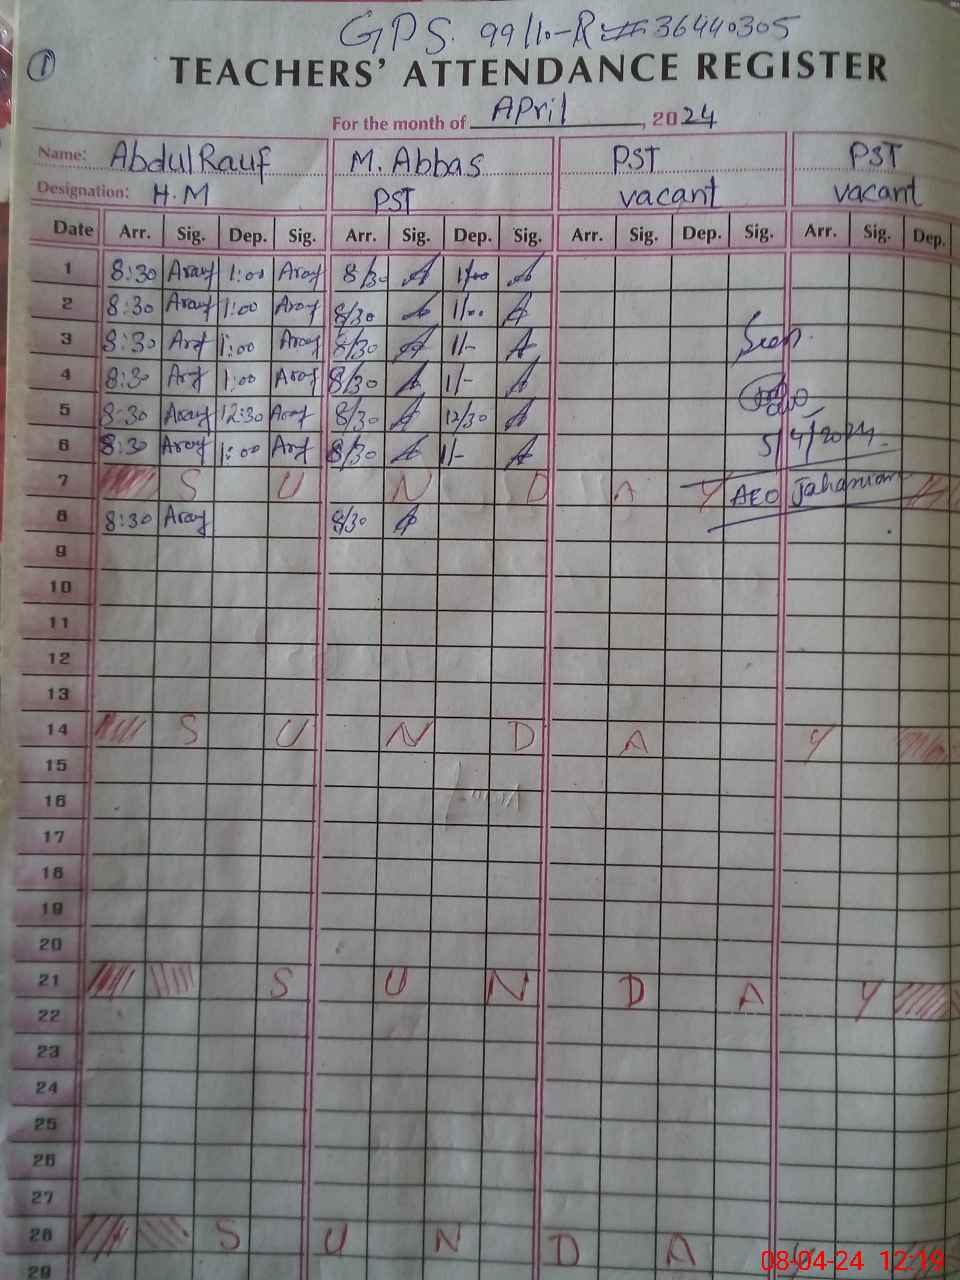 GPS. 99/10-R # 36440305
1
TEACHERS' ATTENDANCE REGISTER
For the month of April, 2024
Name: Abdul Rauf M. Abbas PST PST
Designation: H.M PST vacant vacant
Date Arr. Sig. Dep. Sig. Arr. Sig. Dep. Sig. Arr. Sig. Dep. Sig. Arr. Sig. Dep.
1 8:30 Arauf 1:00 Arauf 8/30 A 1/00 A
2 8:30 Arauf 1:00 Arauf 8/30 A 1/00 A
3 8:30 Arf 1:00 Arauf 8/30 A 1/- A Seen.
4 8:30 Arf 1:00 Arauf 8/30 A 1/- A
5 8:30 Arauf 12:30 Arauf 8/30 A 12/30 A
6 8:30 Arauf 1:00 Arf 8/30 A 1/- A 5/4/2024
7 S U N D A Y AEO Jahanian
8 8:30 Arauf 8/30 A
9
10
11
12
13
14 S U N D A Y
15
16
17
18
19
20
21 S U N D A Y
22
23
24
25
26
27
28 S U N D A Y
29
08-04-24 12:19